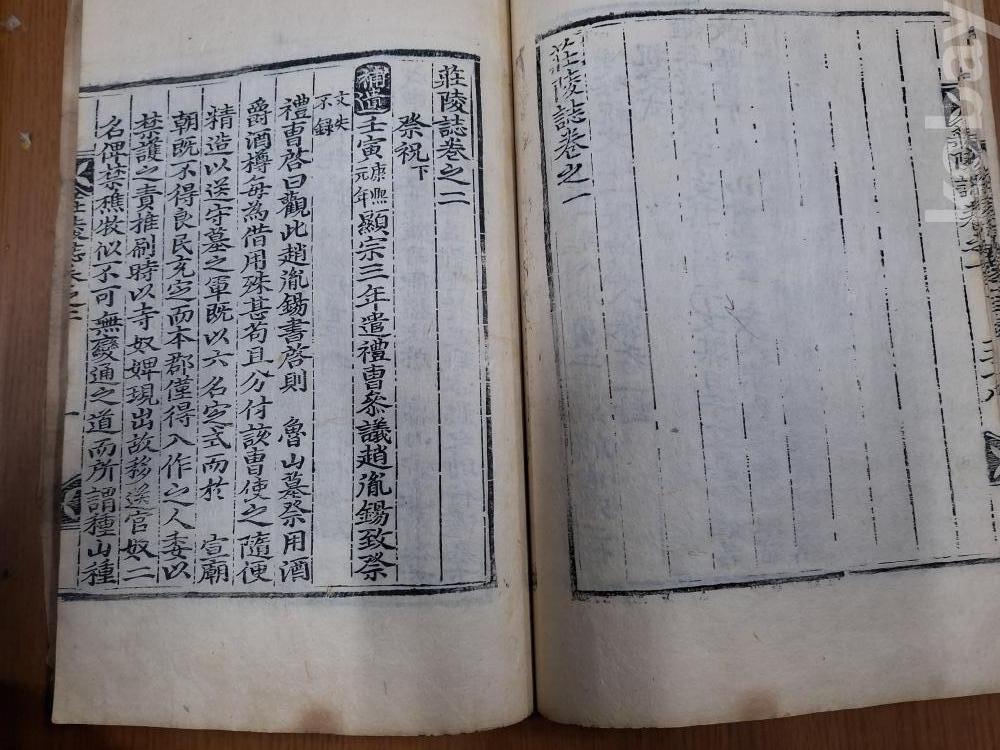 莊陵誌卷之一
莊陵誌卷之二
祭祝下
補遺壬寅康熙元年顯宗三年遣禮曹叅議趙胤錫致祭
文失不錄
禮曹啓曰觀此趙胤錫書啓則 魯山墓祭用酒
爵酒樽每為借用殊甚苟且分付該曹使之隨便
精造以送守墓之軍旣以六名定式而於 宣廟
朝旣不得良民充定而本郡僅得入作之人委以
禁護之責推刷時以寺奴婢現出故移送官奴二
名俾禁樵牧似不可無變通之道而所謂種山種
莊陵誌卷之二
一
kobay